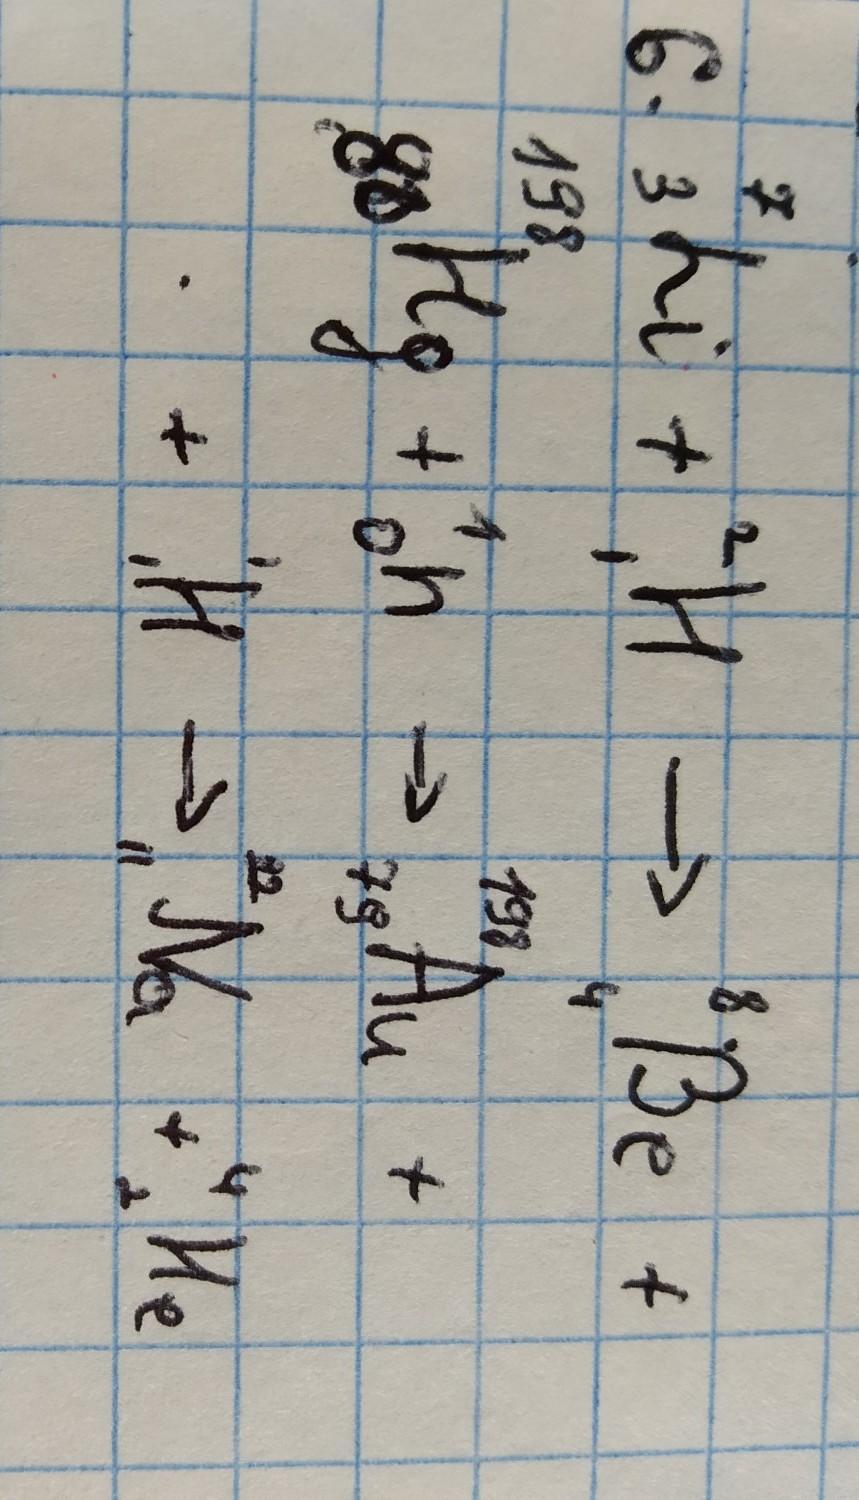 6. ⁷₃Li + ²₁H → ⁸₄Be +
¹⁹⁸₈₀Hg + ¹₀n → ¹⁹⁸₇₉Au +
. + ¹₁H → ²²₁₁Na + ⁴₂He